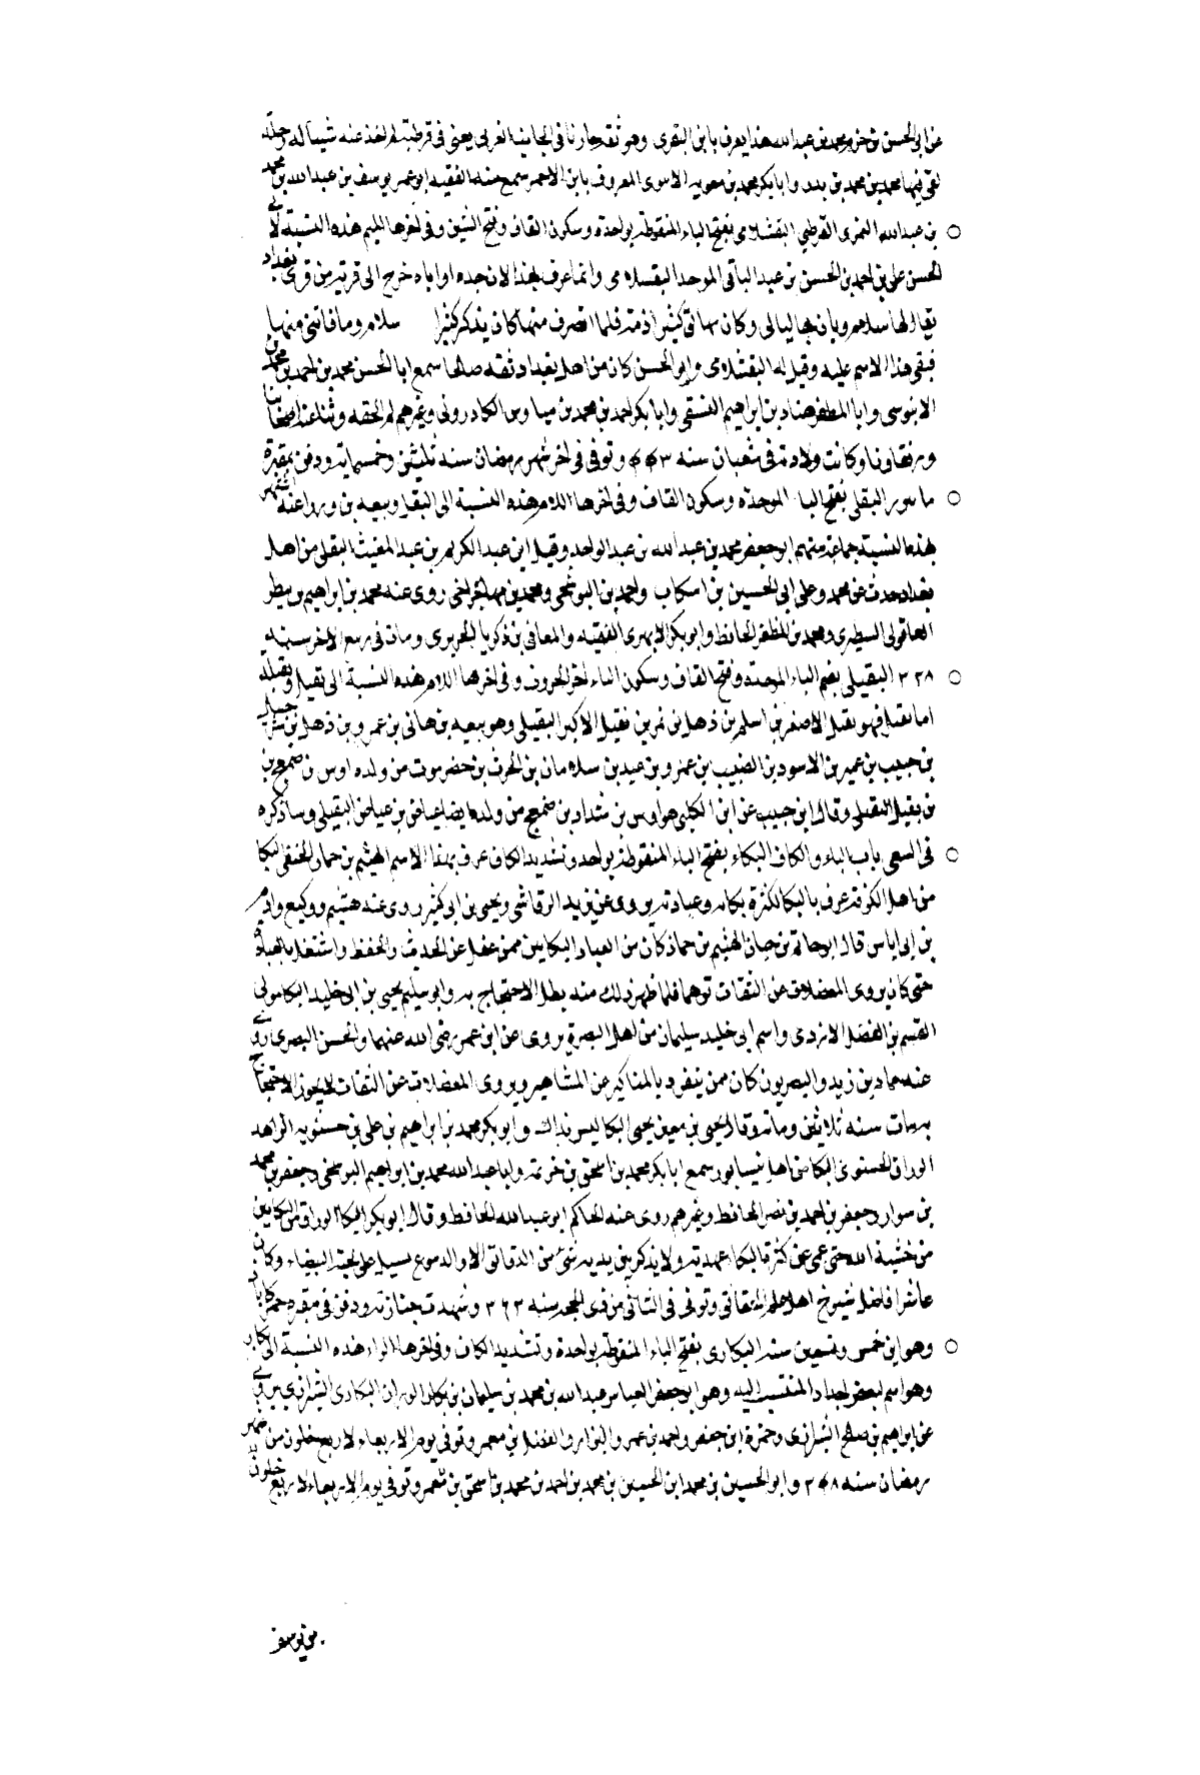 عن ابي الحسن بن حزم محمد بن عبدالله هذا يعرف بابن البقري وهو ثقة جارنا في الجانب الغربي يعني في قرطبة لم اخذ عنه شيئا له رحلة
لقي فيها محمد بن محمد بن بدر وابا بكر محمد بن معوية الاموي المعروف بابن الاحمر سمع منه الفقيه ابو عمر يوسف بن عبدالله بن محمد
بن عبدالله النمري القرطبي البقشلامي بفتح الباء المنقوطة بواحدة وسكون القاف وفتح الشين وفي اخرها الميم هذه النسبة لابي
الحسن علي بن احمد بن الحسن بن عبد الباقي الموحد البقسلامي وانما عرف بهذا لان جده او اباه خرج الى قرية من قرى بغداد
يقال لها سلام وبات بها ليالي وكان بها بق كثير اذته فلما انصرف منها كان يذكر كثيرا سلام وما قاسى منها
فبقي هذا الاسم عليه وقيل له البقشلامي وابو الحسن كان من اهل بغداد ثقة صالحا سمع ابا الحسن محمد بن احمد بن محمد
الابنوسي وابا المظفر هناد بن ابراهيم النسفي وابا بكر احمد بن محمد بن سياوس الكازروني وغيرهم لم الحقه وثنا عنه اصحابنا
ورفقاونا وكانت ولادته في شعبان سنة ٤٤٣ وتوفي في اخر شهر رمضان سنة ثلثين وخمسماية ودفن بمقبرة
البقلي بفتح الباء الموحدة وسكون القاف وفي اخرها اللام هذه النسبة الى البقل وبيعه اشتهر
بهذه النسبة جماعة منهم ابو جعفر محمد بن عبدالله بن عبد الواحد وقيل ابن عبد الكريم بن عبد المغيث البقلي من اهل
بغداد حدث عن محمد وعلي ابي الحسين بن اسكاب واحمد بن البوشنجي ومحمد بن مهاجر اخي روى عنه محمد بن ابراهيم بن
العاقولي ومحمد بن المظفر الحافظ وابو بكر الابهري الفقيه والمعافى بن زكريا الجريري ومات في ربيع الاخر سنة
٣٢٨ البقيلي بضم الباء الموحدة وفتح القاف وسكون الياء اخر الحروف وفي اخرها اللام هذه النسبة الى بقيل وبقيلة
اما بقيل فهو بقيل الاصغر بن اسلم بن ذهل بن نمر بن بقيل الاكبر البقيلي وهو بيعه بن هاني بن عمرو بن ذهل بن
بن حبيب بن عمير بن الاسود بن الضبيب بن عمرو بن عبد بن سلامان بن الحرث بن حضرموت من ولده اوس بن ضمعج بن
بن بقيل البقيلي وقال ابن حبيب عن ابن الكلبي هو اوس بن شداد بن ضمعج من ولده ايضا عياض بن عياض البقيلي وساذكره
في السعي باب الباء والكاف البكاء بفتح الباء المنقوطة بواحدة وتشديد الكاف عرف بهذا الاسم الهيثم بن جماز الحنفي البكا
من اهل الكوفة عرف بالبكا لكثرة بكائه وعبادته يروي عن يزيد الرقاشي ويحيى بن ابي كثير روى عنه هشيم ووكيع وادم
بن ابي اياس قال ابو حاتم بن حبان الهيثم بن جماز كان من العباد البكايين ممن غفل عن الحديث والحفظ واشتغل بالعبادة
حتى كان يروي المعضلات عن الثقات توهما فلما ظهر ذلك منه بطل الاحتجاج به وابو سليم يحيى بن ابي خليد البكا مولى
القسم بن الفضل الازدي واسم ابي خليد سليمان من اهل البصرة يروي عن ابن عمر رضي الله عنهما والحسن البصري روى
عنه حماد بن زيد والبصريون كان ممن ينفرد بالمناكير عن المشاهير ويروي المعضلات عن الثقات لا يجوز الاحتجاج
به مات سنة ثلاثين ومائة وقال يحيى بن معين يحيى البكا ليس بذاك وابو بكر محمد بن ابراهيم بن علي بن حسنويه الزاهد
الوراق الحسنوي البكا من اهل نيسابور سمع ابا بكر محمد بن اسحق بن خزيمة وابا عبدالله محمد بن ابراهيم البوسنجي وجعفر بن محمد
بن سوار وجعفر بن احمد بن نصر الحافظ وغيرهم روى عنه الحاكم ابو عبدالله الحافظ وقال ابو بكر البكا الوراق من البكايين
من خشية الله حتى عمي عن كثرة البكاء عهدته ولا يذكر بين يديه شيء من الدقائق الا والدموع تسيل على لحيته البيضاء وكان
عاشر افاضل شيوخ اهل علم الحقائق وتوفي في الثاني من ذي الحجة سنة ٣٦٢ وشهدت جنازته ودفن في مقبرة
وهو ابن خمس وتسعين سنة البكاري بفتح الباء المنقوطة بواحدة وتشديد الكاف وفي اخرها الراء هذه النسبة الى بكار
وهو اسم لبعض اجداد المنتسب اليه وهو ابو جعفر العباس عبدالله بن محمد بن سليمان بن بكار الوراق البكاري الشيرازي يروي
عن ابراهيم بن صالح الشيرازي وحمزة ابن جعفر واحمد بن عمرو البزار والفضل بن معمر وتوفي يوم الاربعاء لاربع خلون من شهر
رمضان سنة ٣٤٨ وابو الحسين بن محمد ابن الحسين بن محمد بن احمد بن محمد بن اسحق بن معمر وتوفي يوم الاربعاء لاربع خلون